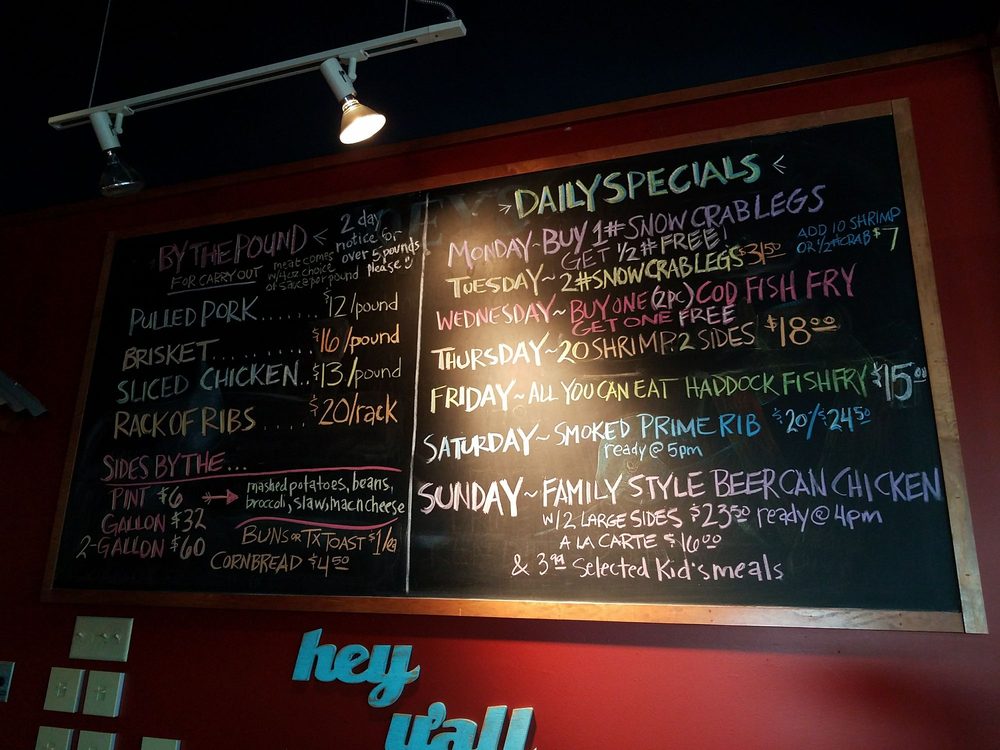 BY THE POUND <
FOR CARRY OUT
2 day
notice for
over 5 pounds
please
meat comes
w/ 4oz choice
of sauce per pound
PULLED PORK....... $12/pound
BRISKET........... $16/pound
SLICED CHICKEN.. $13/pound
RACK OF RIBS ..... $20/rack
SIDES BY THE...
PINT $6
GALLON $32
2-GALLON $60
mashed potatoes, beans,
broccoli, slaw, mac n cheese
BUNS OR TX TOAST $1/ea
CORNBREAD $4.50
> DAILY SPECIALS <
MONDAY~BUY 1# SNOW CRAB LEGS
GET 1/2# FREE!
TUESDAY~2# SNOW CRAB LEGS $31.50
ADD 10 SHRIMP
OR 1/2# CRAB $7
WEDNESDAY~BUY ONE (2pc) COD FISH FRY
GET ONE FREE
THURSDAY~20 SHRIMP. 2 SIDES $18.00
FRIDAY~ALL YOU CAN EAT HADDOCK FISH FRY $15.00
SATURDAY~SMOKED PRIME RIB $20/$24.50
ready @ 5pm
SUNDAY~FAMILY STYLE BEER CAN CHICKEN
W/ 2 LARGE SIDES $23.50 ready @ 4pm
A LA CARTE $16.00
& 3.99 Selected Kid's meals
hey
y'all